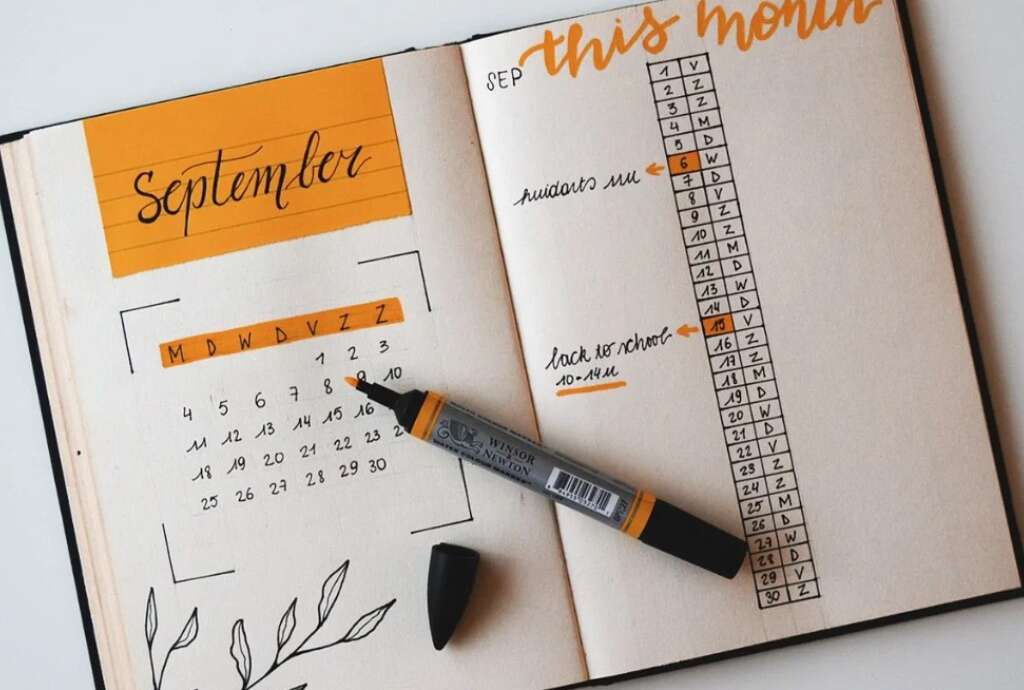 September
M D W D V Z Z
1 2 3
4 5 6 7 8 9 10
11 12 13 14 15 16
18 19 20 21 22 23 2
25 26 27 28 29 30
WINSOR
& NEWTON
WATER COLOUR MARKER
this month
SEP
1 V
2 Z
3 Z
4 M
5 D
6 W
7 D
8 V
9 Z
10 Z
11 M
12 D
13 W
14 D
15 V
16 Z
17 Z
18 M
19 D
20 W
21 D
22 V
23 Z
24 Z
25 M
26 D
27 W
28 D
29 V
30 Z
huidarts
back to school
10-14u